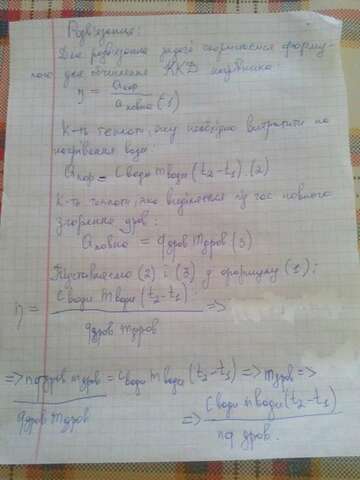 Розв'язання:
Для розв'язання задачі скористаємося форму-
лою для обчислення ККД нагрівника:
η = Qкор / Qповна (1)
К-ть теплоти, яку необхідно витратити на
нагрівання води:
Qкор = Cводи mводи (t₂-t₁). (2)
К-ть теплоти, яка виділяється під час повного
згорання дров:
Qповна = qдров mдров (3)
Підставляємо (2) і (3) у формулу (1):
η = Cводи mводи (t₂-t₁) / qдров mдров =>
=> ηqдров mдров / qдров mдров = Cводи mводи (t₂-t₁) => mдров =>
=> Cводи mводи (t₂-t₁) / ηq дров.